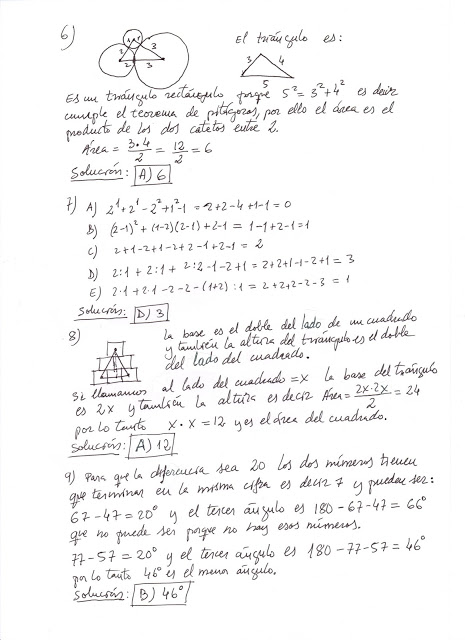 6)
1 1
2 3
2 3
El triángulo es:
3 4
5
Es un triángulo rectángulo porque 5² = 3² + 4² es decir
cumple el teorema de pitágoras, por ello el área es el
producto de los dos catetos entre 2.
Área = 3·4/2 = 12/2 = 6
Solución: A) 6
7) A) 2¹ + 2¹ - 2² + 1² - 1 = 2+2-4+1-1 = 0
B) (2-1)² + (1-2)(2-1) + 2-1 = 1-1+2-1 = 1
C) 2+1-2+1-2+2-1+2-1 = 2
D) 2:1 + 2:1 + 2:2 - 1 - 2 + 1 = 2+2+1-1-2+1 = 3
E) 2·1 + 2·1 - 2 - 2 - (1+2):1 = 2+2+2-2-3 = 1
Solución: D) 3
8)
La base es el doble del lado de un cuadrado
y también la altura del triángulo es el doble
del lado del cuadrado.
Si llamamos al lado del cuadrado = x la base del triángulo
es 2x y también la altura es decir Área = 2x·2x/2 = 24
por lo tanto x · x = 12 y es el área del cuadrado.
Solución: A) 12
9) Para que la diferencia sea 20 los dos números tienen
que terminar en la misma cifra es decir 7 y pueden ser:
67 - 47 = 20° y el tercer ángulo es 180 - 67 - 47 = 66°
que no puede ser porque no hay esos números.
77 - 57 = 20° y el tercer ángulo es 180 - 77 - 57 = 46°
por lo tanto 46° es el menor ángulo.
Solución: B) 46°